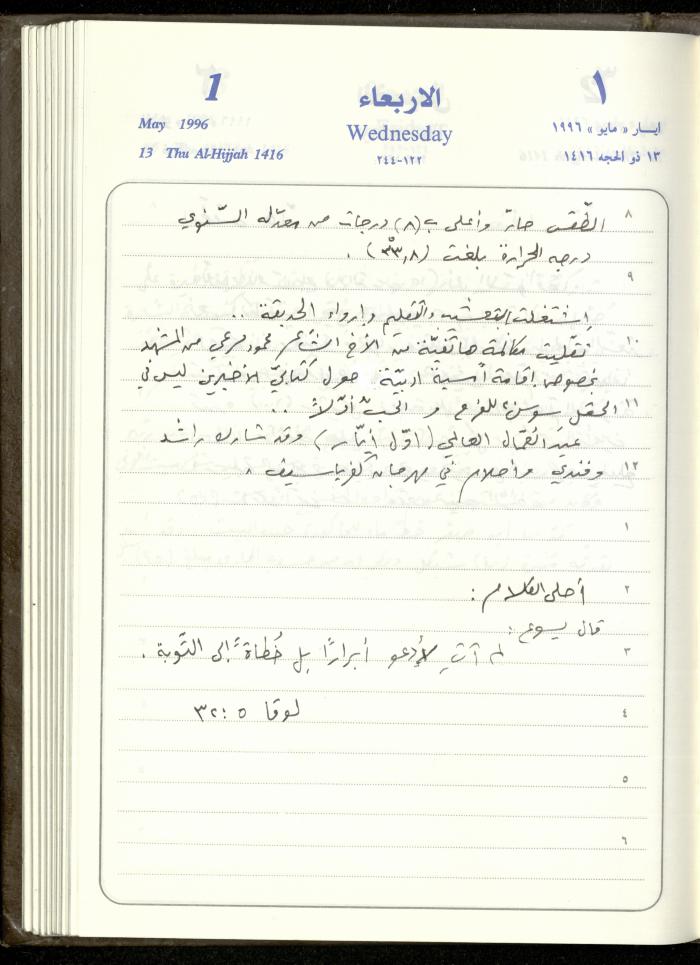 1
١
الاربعاء
Wednesday
١٢٢-٢٤٤
May 1996
ايـار « مايو » ١٩٩٦
13 Thu Al-Hijjah 1416
١٣ ذو الحجه ١٤١٦
٨
الطّقس حارّ وأعلى ب(٨) درجات من معدّله السّنوي
درجه الحرارة بلغت (٣٣,٨°) .
٩
إشتغلت بالتعشيب والتقليم وإرواء الحديقة ..
١٠
تلقّيت مكالمة هاتفيّة من الأخ الشّاعر محمود مرعي من المشهد
بخصوص إقامة أمسية ادبيّة حول كتابيّ الأخيرين ليس في
١١
الحقل سوسنٌ للفرح و الحبّ أوّلاً ..
عيد العمّال العالمي (اوّل أيّار) وقد شارك راشد
١٢
وفندي وأحلام في مهرجان كفرياسيف .
١
٢
أحلى الكلام :
قال يسوع :
٣
لم آتِ لأدعو أبرارًا بل خُطاةً إلى التّوبة .
٤
لوقا ٥ : ٣٢
٥
٦